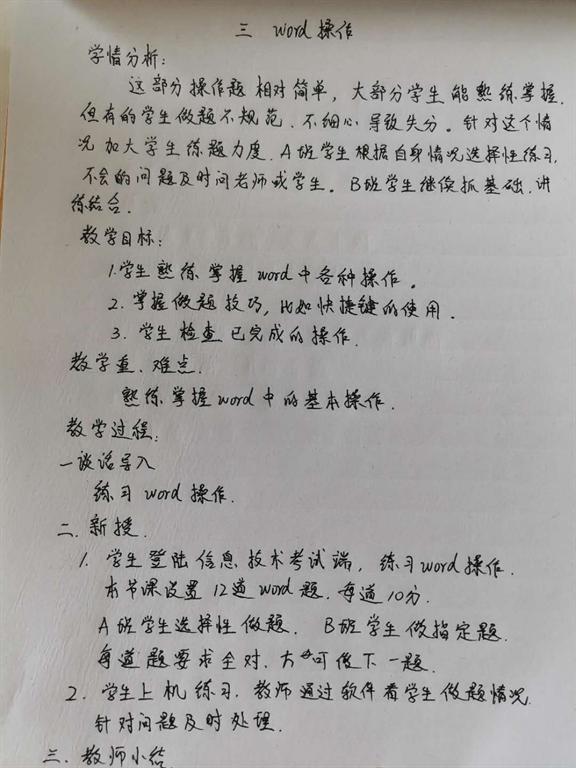 三 Word操作
学情分析:
这部分操作题相对简单，大部分学生能熟练掌握.
但有的学生做题不规范、不细心导致失分。针对这个情
况加大学生练题力度. A班学生根据自身情况选择性练习,
不会的问题及时问老师或学生。B班学生继续抓基础.讲
练结合.
教学目标:
1.学生熟练掌握word中各种操作。
2. 掌握做题技巧,比如快捷键的使用.
3. 学生检查已完成的操作.
教学重、难点.
熟练掌握word中的基本操作.
教学过程:
一谈话导入
练习word操作.
二.新授.
1. 学生登陆信息技术考试端, 练习word操作.
本节课设置12道word题.每道10分.
A班学生选择性做题. B班学生做指定题.
每道题要求全对.才可做下一题.
2. 学生上机练习.教师通过软件看学生做题情况.
针对问题及时处理.
三.教师小结